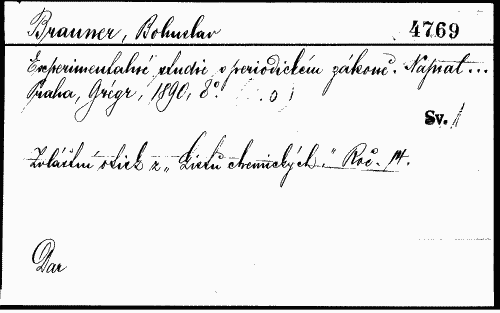 Brauner, Bohuslav 4769
Experimentalné studie o periodickém zákoně. Napsal...
Praha, Grégr, 1890, 8°.
Sv. 1
Zvláštní otisk z „Listů chemických." Roč. 14.
Dar